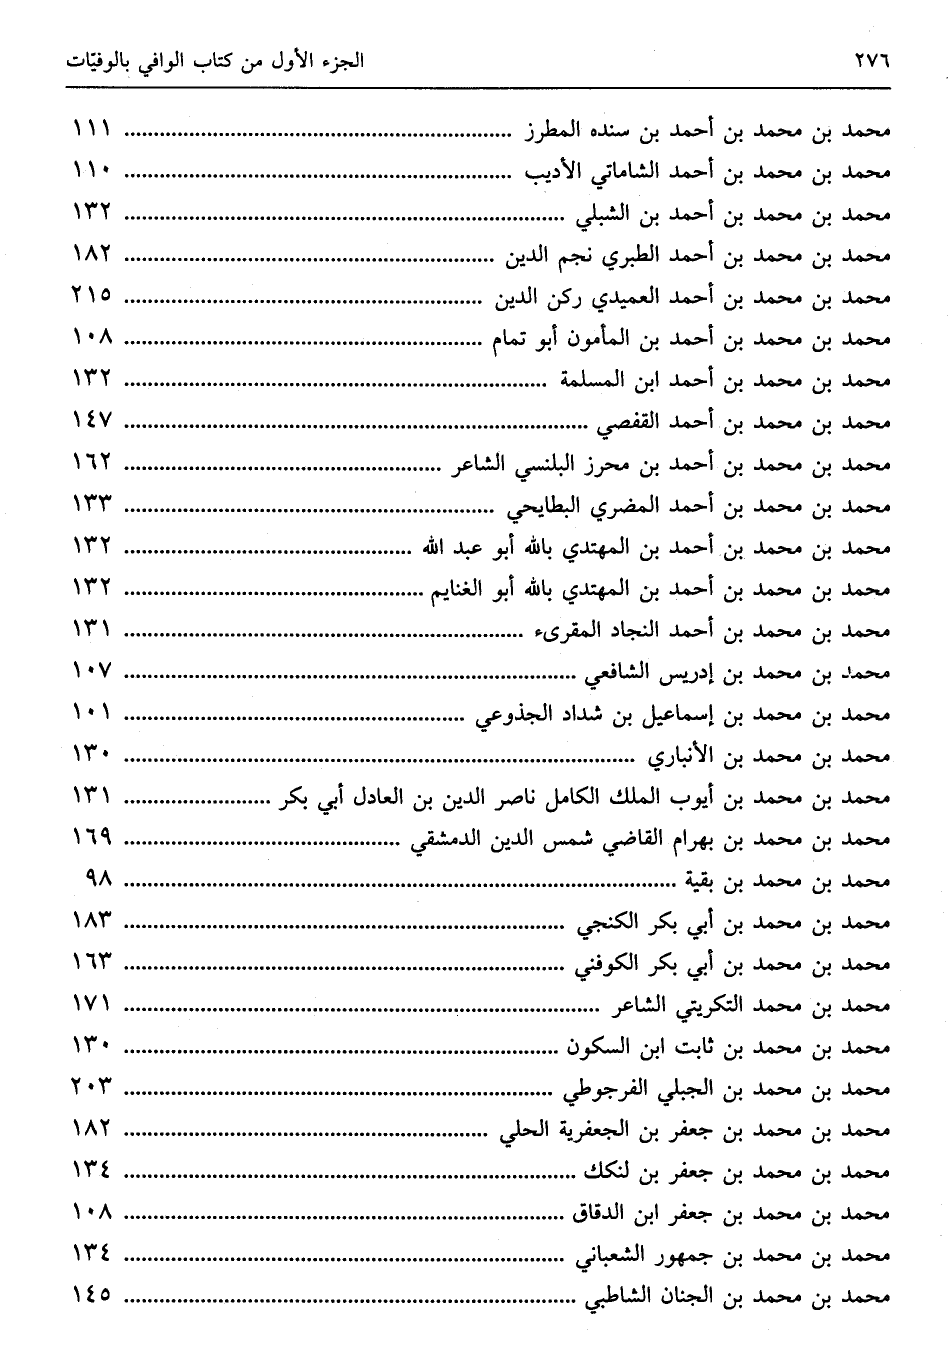 ٢٧٦ الجزء الأول من كتاب الوافي بالوفيّات
محمد بن محمد بن أحمد بن سنده المطرز ................ ١١١
محمد بن محمد بن أحمد الشاماتي الأديب ................ ١١٠
محمد بن محمد بن أحمد بن الشبلي ................ ١٣٢
محمد بن محمد بن أحمد الطبري نجم الدين ................ ١٨٢
محمد بن محمد بن أحمد العميدي ركن الدين ................ ٢١٥
محمد بن محمد بن أحمد بن المأمون أبو تمام ................ ١٠٨
محمد بن محمد بن أحمد ابن المسلمة ................ ١٣٢
محمد بن محمد بن أحمد القفصي ................ ١٤٧
محمد بن محمد بن أحمد بن محرز البلنسي الشاعر ................ ١٦٢
محمد بن محمد بن أحمد المضري البطايحي ................ ١٣٣
محمد بن محمد بن أحمد بن المهتدي بالله أبو عبد الله ................ ١٣٢
محمد بن محمد بن أحمد بن المهتدي بالله أبو الغنايم ................ ١٣٢
محمد بن محمد بن أحمد النجاد المقرىء ................ ١٣١
محمد بن محمد بن إدريس الشافعي ................ ١٠٧
محمد بن محمد بن إسماعيل بن شداد الجذوعي ................ ١٠١
محمد بن محمد بن الأنباري ................ ١٣٠
محمد بن محمد بن أيوب الملك الكامل ناصر الدين بن العادل أبي بكر ................ ١٣١
محمد بن محمد بن بهرام القاضي شمس الدين الدمشقي ................ ١٦٩
محمد بن محمد بن بقية ................ ٩٨
محمد بن محمد بن أبي بكر الكنجي ................ ١٨٣
محمد بن محمد بن أبي بكر الكوفني ................ ١٦٣
محمد بن محمد التكريتي الشاعر ................ ١٧١
محمد بن محمد بن ثابت ابن السكون ................ ١٣٠
محمد بن محمد بن الجبلي الفرجوطي ................ ٢٠٣
محمد بن محمد بن جعفر بن الجعفرية الحلي ................ ١٨٢
محمد بن محمد بن جعفر بن لنكك ................ ١٣٤
محمد بن محمد بن جعفر ابن الدقاق ................ ١٠٨
محمد بن محمد بن جمهور الشعباني ................ ١٣٤
محمد بن محمد بن الجنان الشاطبي ................ ١٤٥